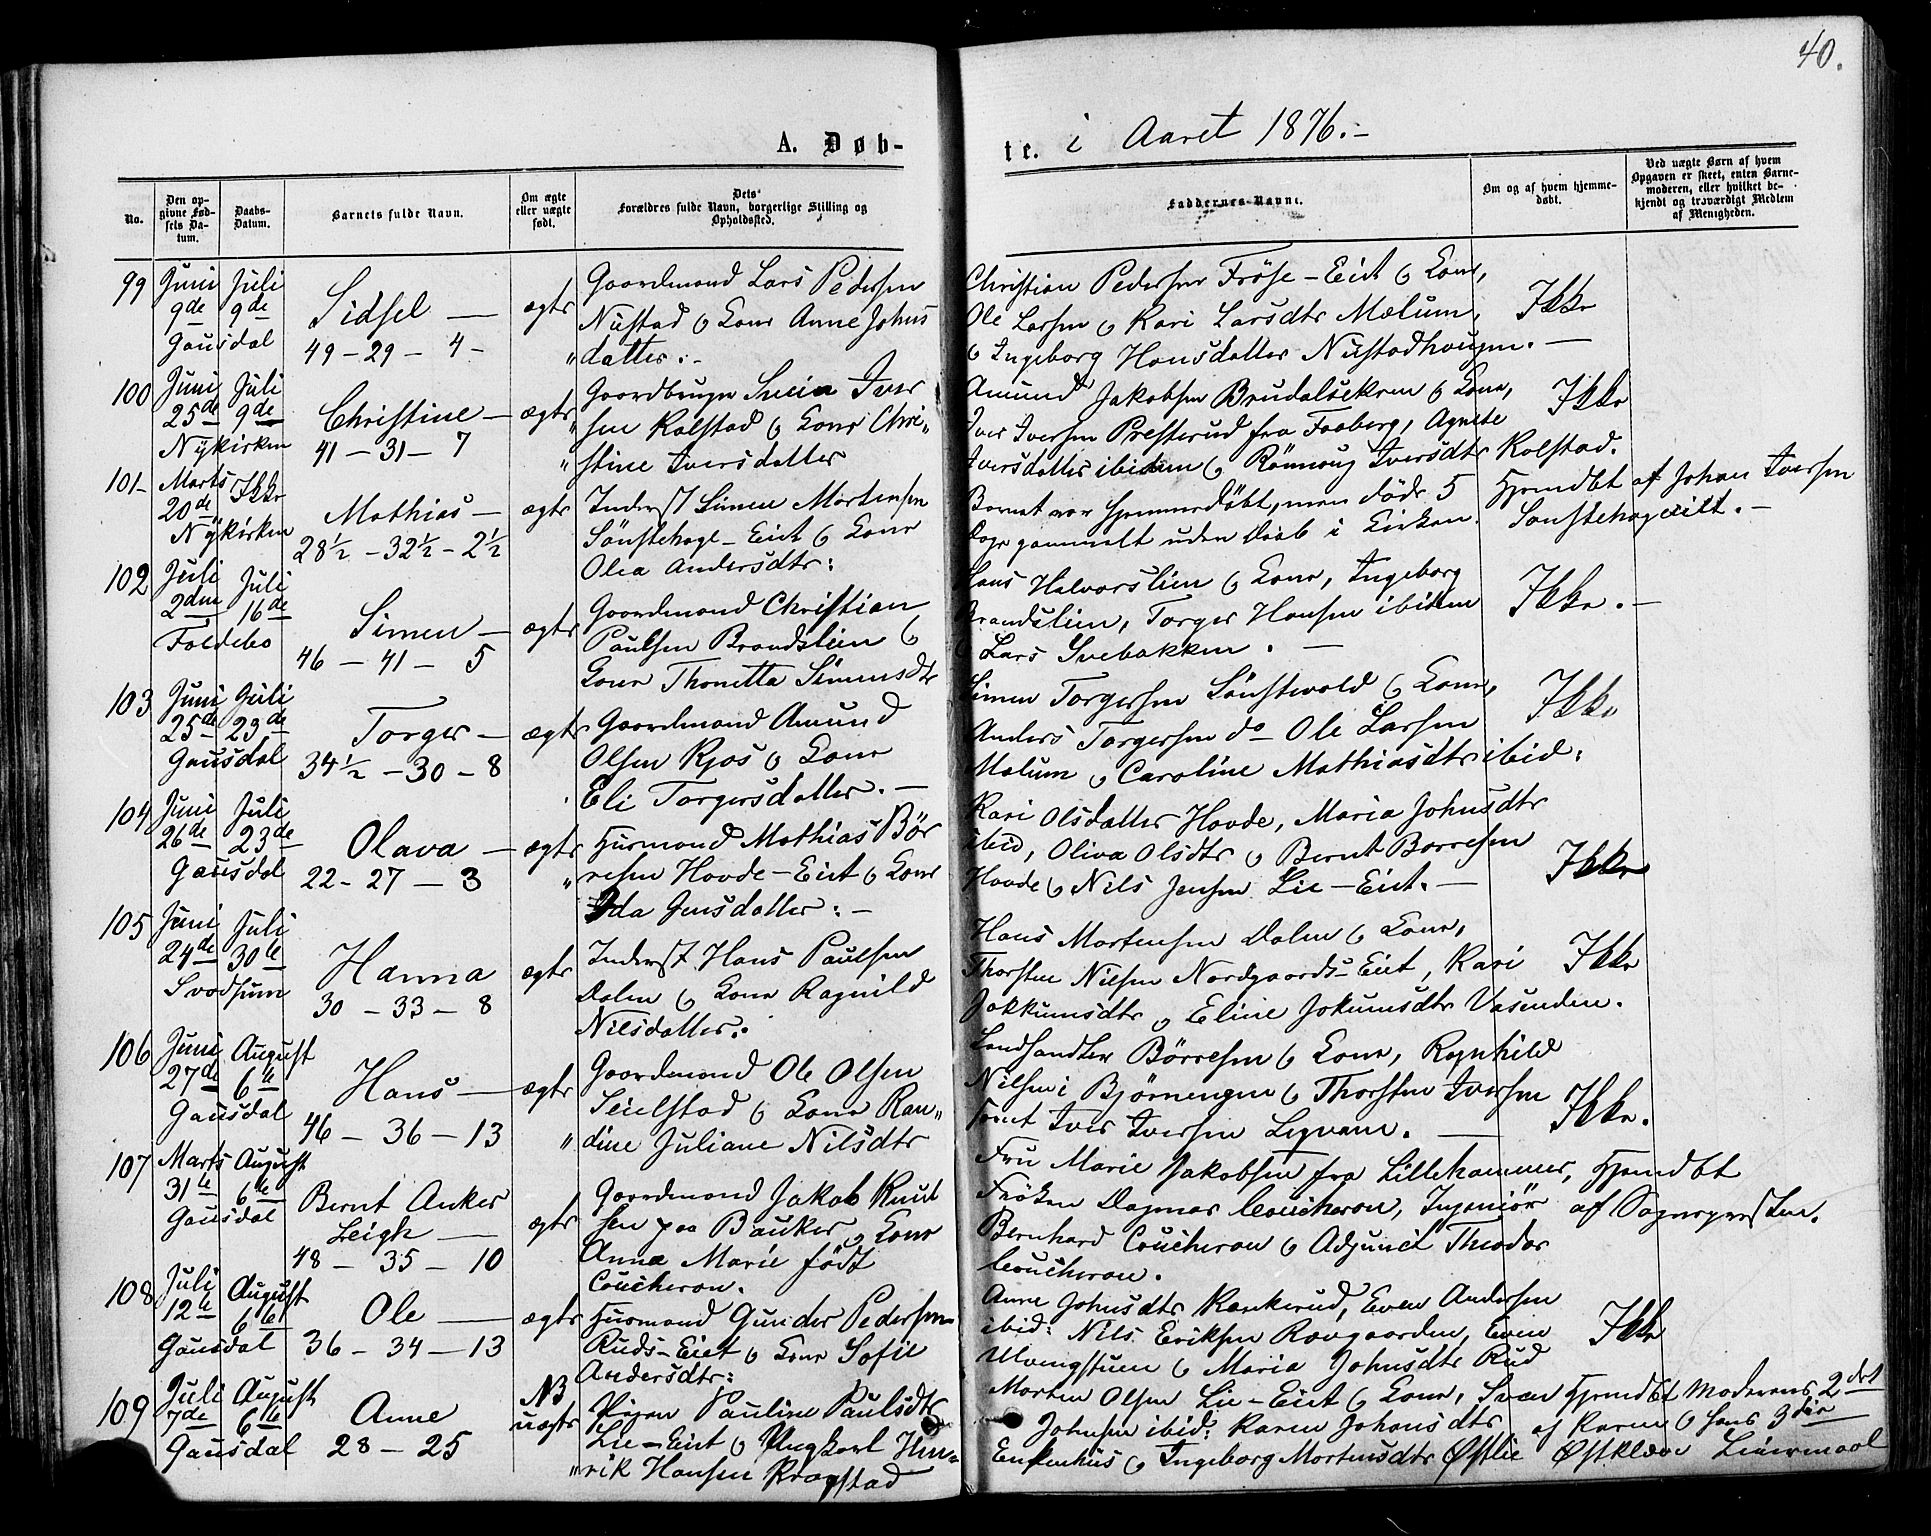 40.
A. Døb-
te. i Aaret 1876.-
No.
Den op-
givne Fød-
sels Da-
tum.
Daabs-
Datum.
Barnets fulde Navn.
Om ægte
eller uægte
født.
Dets
Forældres fulde Navn, borgerlige Stilling og
Opholdssted.
Faddernes Navne.
Om og af hvem hjemme-
døbt.
Ved uægte Børn af hvem
Opgaven er skeet, enten Barne-
moderen, eller hvilket be-
kjendt og troværdigt Medlem
af Menigheden.
99
Juni
9de
Gausdal
Juli
9de
Sidsel
49-29-4-
ægte
Gaardmand Lars Pedersen
Nustad & Kone Anne Johns
" datter.-
Christian Pedersen Fröse-Eiet & Kone,
Ole Larsen & Kari Larsdtr Mælum,
& Ingeborg Hansdatter Nustadhaugen.-
Ikke
100
Juni
25de
Nÿkirken
Juli
9de
Christine-
41-31-7
ægte
Gaardbruger Svein Iver
" sen Kalstad & Kone Chri"
" stine Iversdatter
Amund Jakobsen Brudalsekren & Kone,
Iver Iversen Presterud fra Faaberg, Agnete
Iversdatter ibidem & Rönnoug Iversdtr Kolstad.
Ikke
101-
Marts
20de
Nÿkirken
Ikke
Mathias-
28½-32½-2½
ægte
Inderst Simen Mortensen
Sönstehage-Eiet & Kone
Olea Andersdtr:
Barnet var hjemmedöbt, men döde 5
Dage gammelt uden Daab i Kirken.
Hjemdbt af Johan Iversen
Sonstehageeilt.-
102
Juli
2den
Foldebo
Juli
16de
Simen-
46-41-5
ægte
Gaardmand Christian
Paulsen Brandslien &
Kone Thonetta Simensdtr
Hans Halvorslien & Kone, Ingeborg
Brandslien, Torger Hansen ibidem
& Lars Svebakken.-
Ikke.-
103
Juni
25de
Gausdal
Juli
23de
Torger-
34½-30-8
ægte
Gaardmand Amund
Olsen Kjos & Kone
Eli Torgersdatter.-
Simen Torgersen Sönstevold & Kone,
Anders Torgersen do- Ole Larsen
Mælum & Caroline Mathiasdtr ibid:
Ikke
104
Juni
26de
Gausdal
Juli
23de
Olava-
22-27-3
ægte
Husmand Mathias Bör
" resen Hovde-Eiet & Kone
Ida Jensdatter:-
Kari Olsdatter Hovde, Maria Johnsdtr
ibid, Oliva Olsdtr & Bernt Borresen
Hovde & Nils Jensen Lie-Eiet.-
Ikke
105
Juni
24de
Svadsum
Juli
30te
Hanna
30-33-8
ægte
Inderst Hans Paulsen
Dalen & Kone Ragnild
Nilsdatter:
Hans Mortensen Dalen & Kone,
Thorsten Nilsen Nordgaards-Eiet, Kari
Jokkumsdtr & Eline Jokumsdtr Vasenden.
Ikke
106
Juni
27de
Gausdal
August
6te
Hans-
46-36-13
ægte
Gaardmand Ole Olsen
Seielstad & Kone Ran"
" dine Juliane Nilsdtr
Landhandler Börresen & Kone, Ragnhild
Nilsen i Björnengen & Thorsten Iversen
samt Iver Iversen Legvam.-
Ikke.
107
Marts
31te
Gausdal
August
6te
Bernt Anker
Leigh-
48-35-10
ægte
Gaardmand Jakob Knud
sen paa Bauker & Kone
Anna Marie födt
Coucheron.
Fru Marie Jakobsen fra Lillehammer,
Fröken Dagmar Coucheron, Ingeniör
Bernhard Coucheron & Adjunct Theodor
Coucheron.
Hjemdbt
af Sognepresten.
108
Juli
12te
Gausdal
August
6te
Ole-
36-34-13
ægte
Husmand Gunder Pedersen
Ruds-Eiet & Kone Sofie
Andersdtr:
Anne Johnsdtr Kankerud, Even Andersen
ibid: Nils Eriksen Rovgaarden, Even
Ulvengstuen & Maria Johnsdtr Rud
Ikke
109
Juli
7de
Gausdal
August
6te
Anne
28-25
NB
uægte
Pigen Pauline Paulsdtr
Lie-Eiet & Ungkarl Hen"
" rik Hansen Kragstad
Morten Olsen Lie-Eiet & Kone, Svæn
Johnsen ibid: Karen Johansdtr
Enkenhus & Ingeborg Mortensdtr Østlie
Hjemdbt
af Karen
Østkleve
Moderens 2det
& hans 3die
Leiermaal